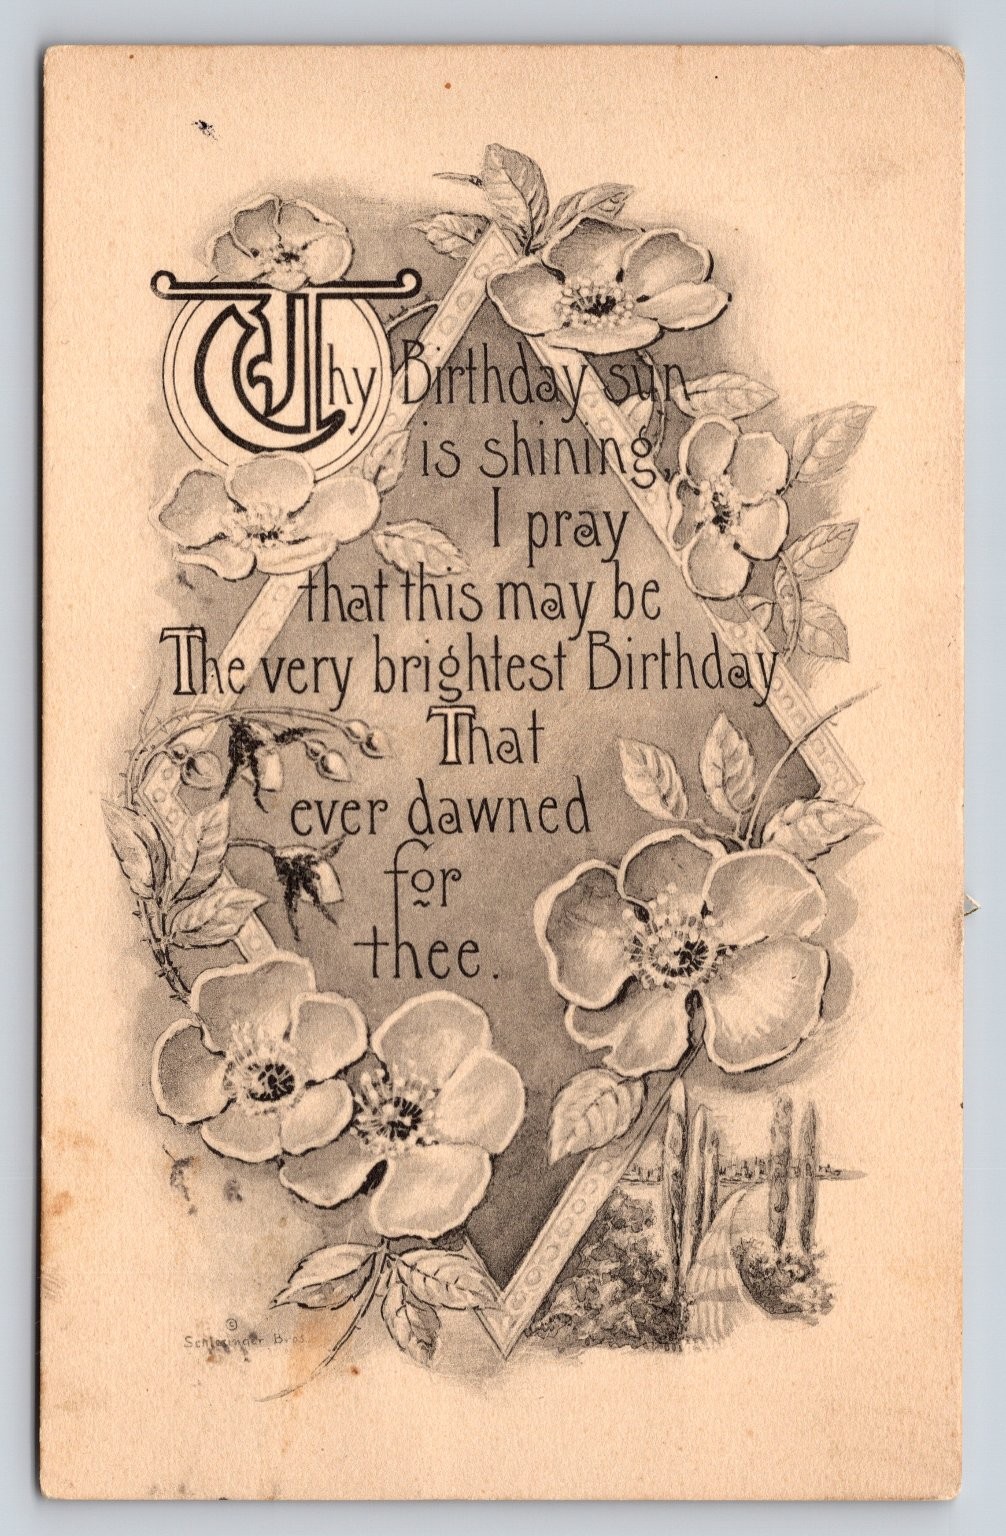 Thy Birthday sun
is shining,
I pray
that this may be
The very brightest Birthday
That
ever dawned
for
thee.
©
Schlesinger Bros.